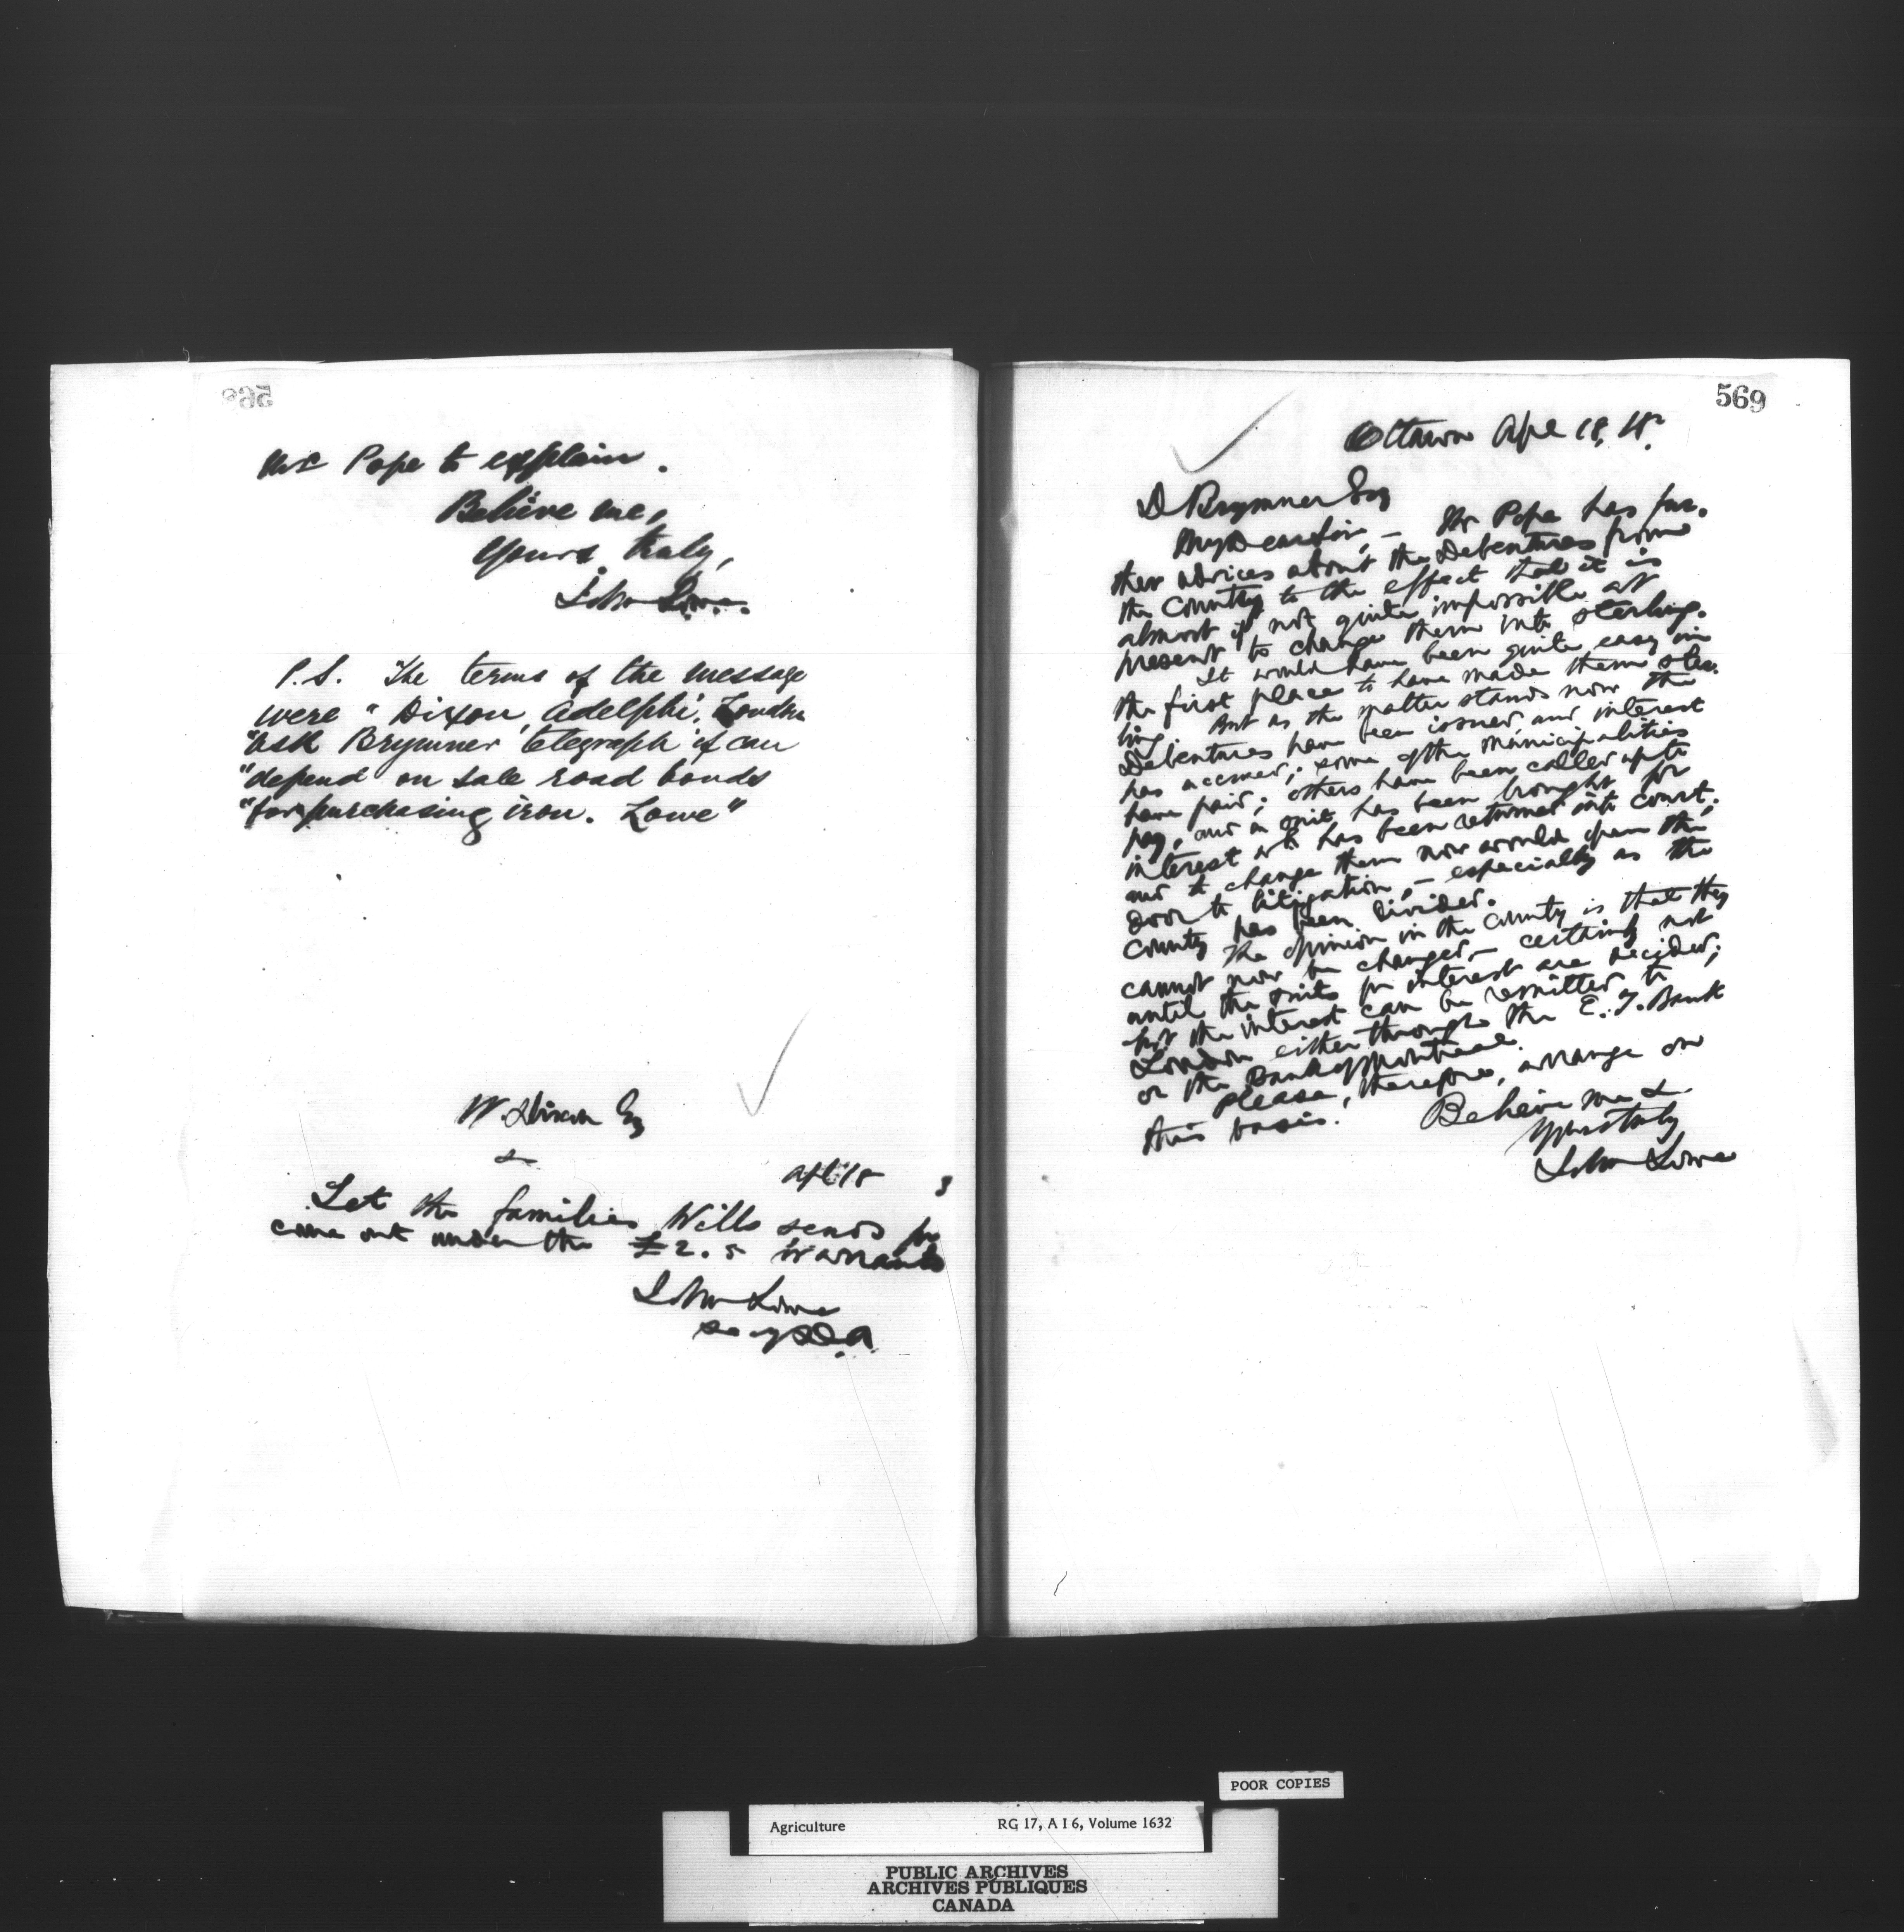 568
Mr Pope to explain.
Believe me,
Yours truly,
John Lowe.
P.S. The terms of the message
were "Dixon, Adelphi, London
"ask Brymner telegraph if can
"depend on sale road bonds
"for purchasing iron. Lowe"
W Dixon Esq
Apl 18
Let the families Wills sends for
come out under the £2.5 warrants
John Lowe
Secy D.A.
569
Ottawa Apl 18,
D Brymner Esq
My Dear Sir, – Mr Pope has fur-
ther advices about the Debentures from
the County to the effect that it is
almost if not quite impossible at
present to change them into sterling.
It would have been quite easy in
the first place to have made them ster-
ling. But as the matter stands now the
Debentures have been issued and interest
has accrued; some of the municipalities
have paid; others have been called up to
pay, and a suit has been brought for
interest wh has been returned into court;
and to change them now would open the
door to litigation, – especially as the
County has been divided.
The opinion in the County is that they
cannot now be changed – certainly not
until the suits for interest are decided;
but the interest can be remitted to
London either through the E. T. Bank
or the Bank of Montreal.
Please, therefore, arrange on
this basis.
Believe me &
Yours truly
John Lowe
POOR COPIES
Agriculture RG 17, A I 6, Volume 1632
PUBLIC ARCHIVES
ARCHIVES PUBLIQUES
CANADA